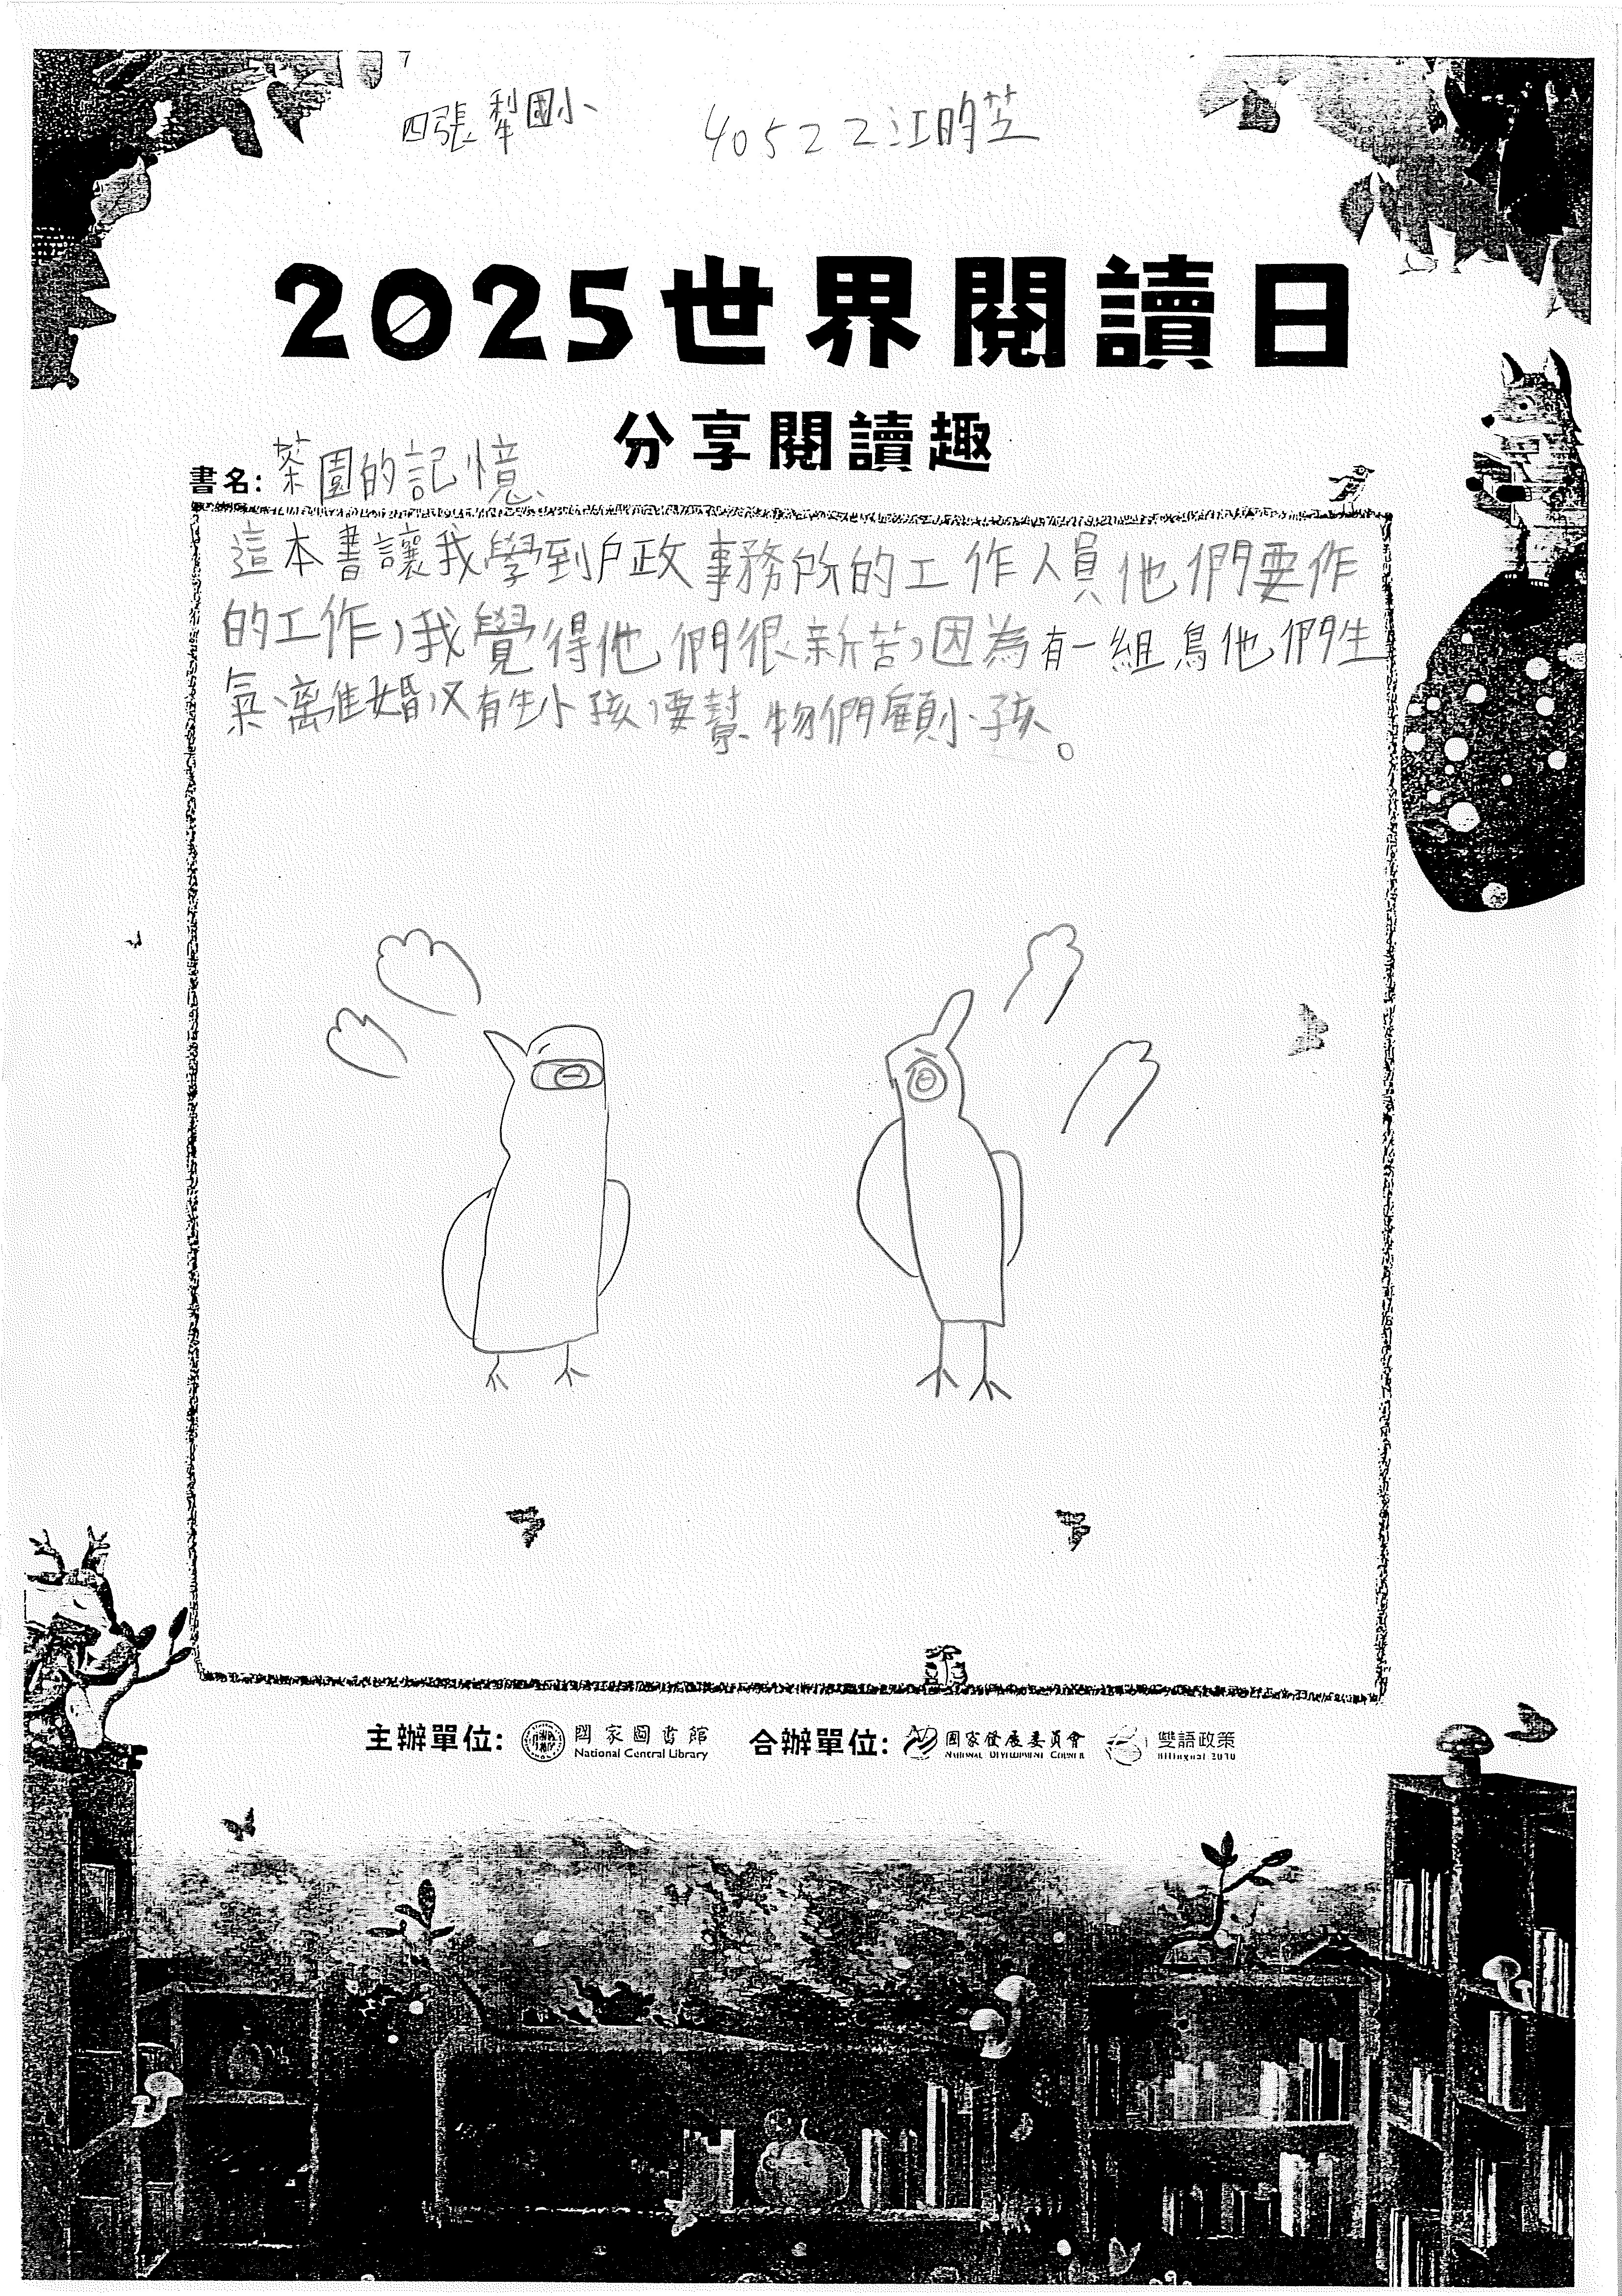 四張犁國小 40522江昀芸
2025世界閱讀日
分享閱讀趣
書名:茶園的記憶
這本書讓我學到戶政事務所的工作人員他們要作
的工作,我覺得他們很新苦,因為有一組鳥他們生
氣離婚,又有生小孩,要幫物們顧小孩。
主辦單位: 國家圖書館 合辦單位: 國家發展委員會 雙語政策
National Central Library NATIONAL DEVELOPMENT COUNCIL Bilingual 2030